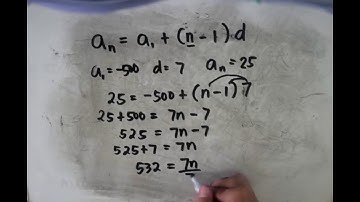 aₙ = a₁ + (n - 1) d
a₁ = -500 d = 7 aₙ = 25
25 = -500 + (n - 1) 7
25 + 500 = 7n - 7
525 = 7n - 7
525 + 7 = 7n
532 = 7n